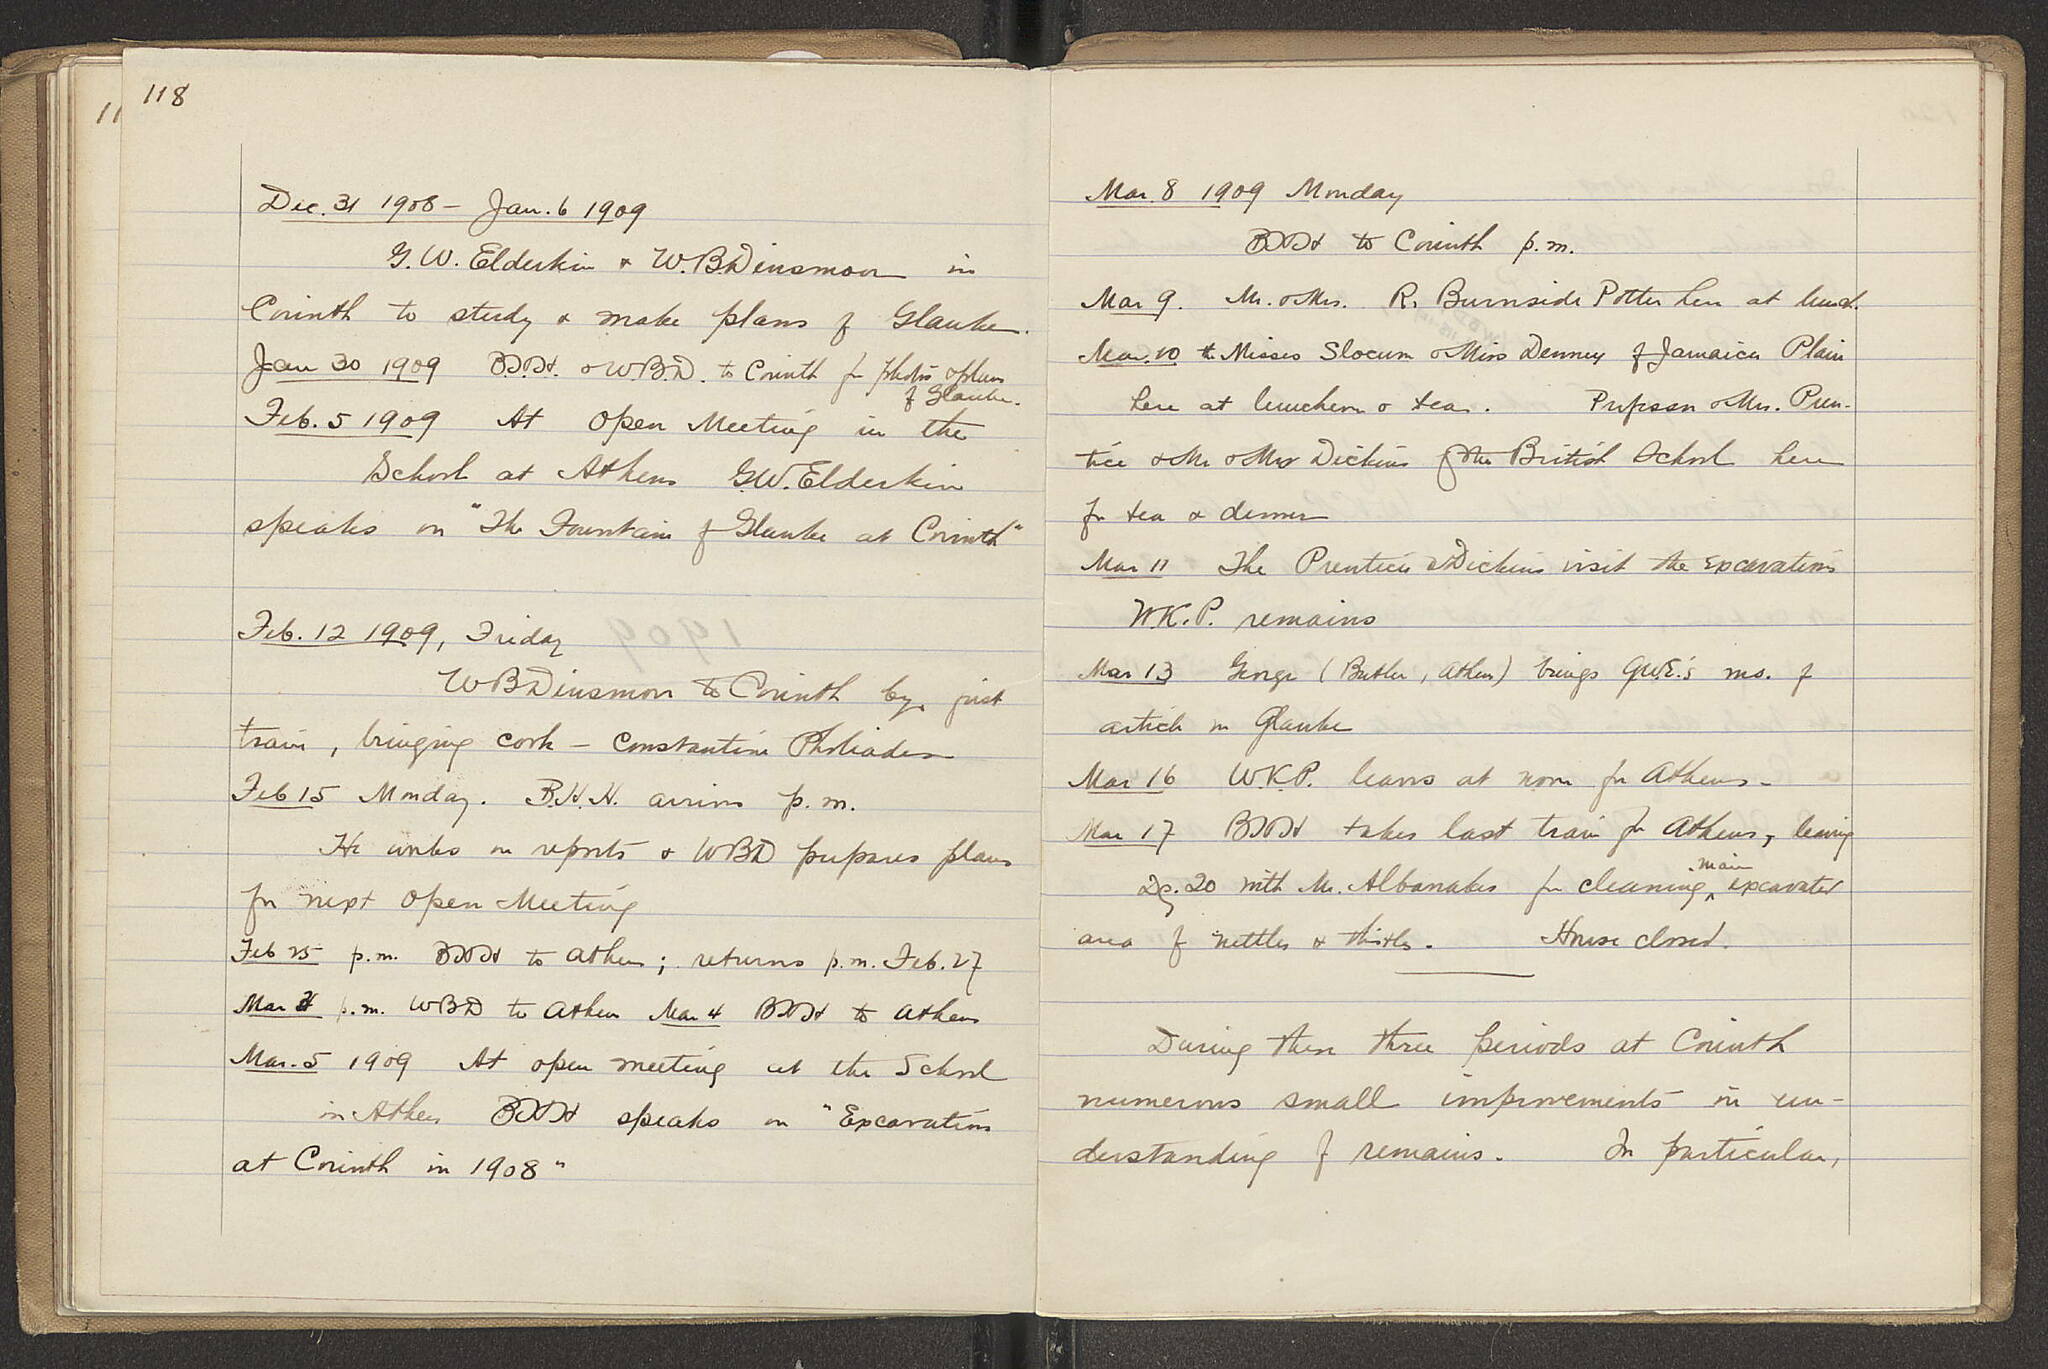 118
11
Dec. 31 1908 – Jan. 6 1909
G. W. Elderkin & W. B. Dinsmoor in
Corinth to study & make plans of Glauke.
Jan 30 1909 B.H.H. & W.B.D. to Corinth for photos & plans
of Glauke.
Feb. 5 1909 At Open Meeting in the
School at Athens G.W. Elderkin
speaks on "The Fountain of Glauke at Corinth"
Feb. 12 1909, Friday
W B Dinsmoor to Corinth by first
train, bringing cook – Constantine
Feb 15 Monday. B.H.H. arrives p.m.
He works on reports & WBD prepares plans
for next Open Meeting
Feb 25 p.m. BHH to Athens; returns p.m. Feb. 27
Mar p.m. WBD to Athens Mar 4 BHH to Athens
Mar. 5 1909 At open meeting at the School
in Athens BHH speaks on "Excavations
at Corinth in 1908"
Mar. 8 1909 Monday
BHH to Corinth p.m.
Mar 9. Mr. & Mrs. R. Burnside Potter here at lunch.
Mar. 10 the Misses Slocum & Miss Denney of Jamaica Plain
here at luncheon & tea. Professor & Mrs. Pren-
tice & Mr & Mrs Dickins of the British School here
for tea & dinner
Mar 11 The Prentices & Dickins visit the excavations
W.K.P. remains
Mar 13 George (Butler, Athens) brings GWE's ms. of
article on Glauke
Mar 16 W.K.P. leaves at noon for Athens –
Mar 17 BHH takes last train for Athens, leaving
Dr. 20 with Mr. Albanakes for cleaning ^ main excavated
area of nettles & thistles. House closed.
During these three periods at Corinth
numerous small improvements in un-
derstanding of remains. In particular,